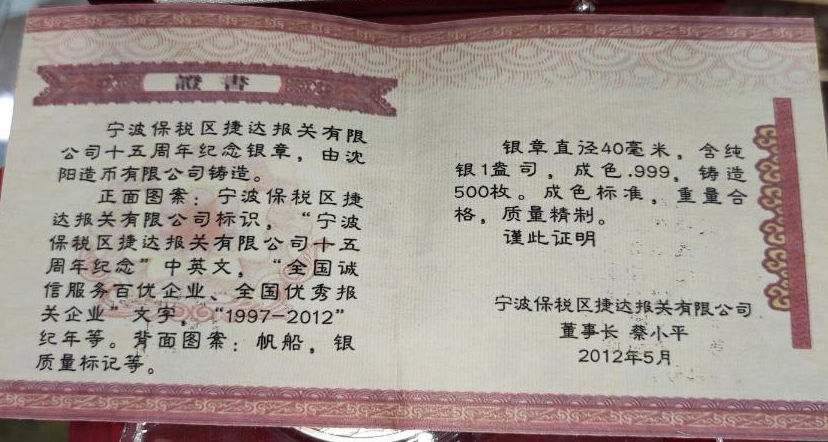 證書
宁波保税区捷达报关有限
公司十五周年纪念银章，由沈
阳造币有限公司铸造。
正面图案：宁波保税区捷
达报关有限公司标识，“宁波
保税区捷达报关有限公司十五
周年纪念”中英文，“全国诚
信服务百优企业、全国优秀报
关企业”文字，“1997-2012”
纪年等。背面图案：帆船，银
质量标记等。
银章直径40毫米，含纯
银1盎司，成色.999，铸造
500枚。成色标准，重量合
格，质量精制。
谨此证明
宁波保税区捷达报关有限公司
董事长 蔡小平
2012年5月